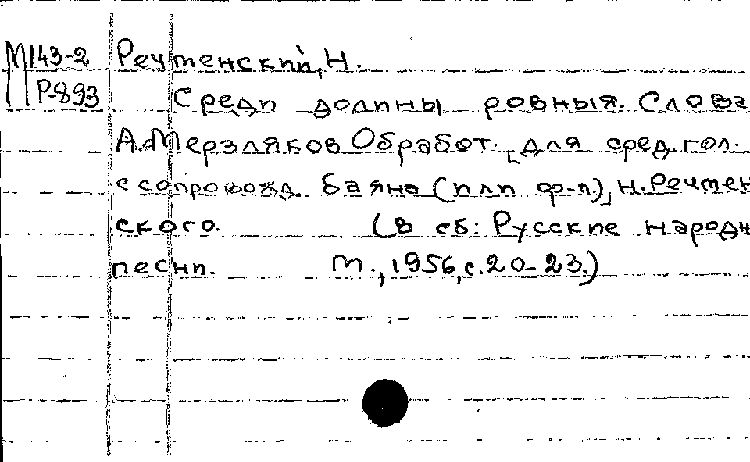 М143-2 Речменский, Н.
Р-893 Среди долины ровныя. Слова
А. Мерзляков Обработ. [для сред. гол.
с сопровожд. баяна (или ф-п)] Н. Речмен
ского. (В сб: Русские народн
песни. М., 1956, с. 20-23.)